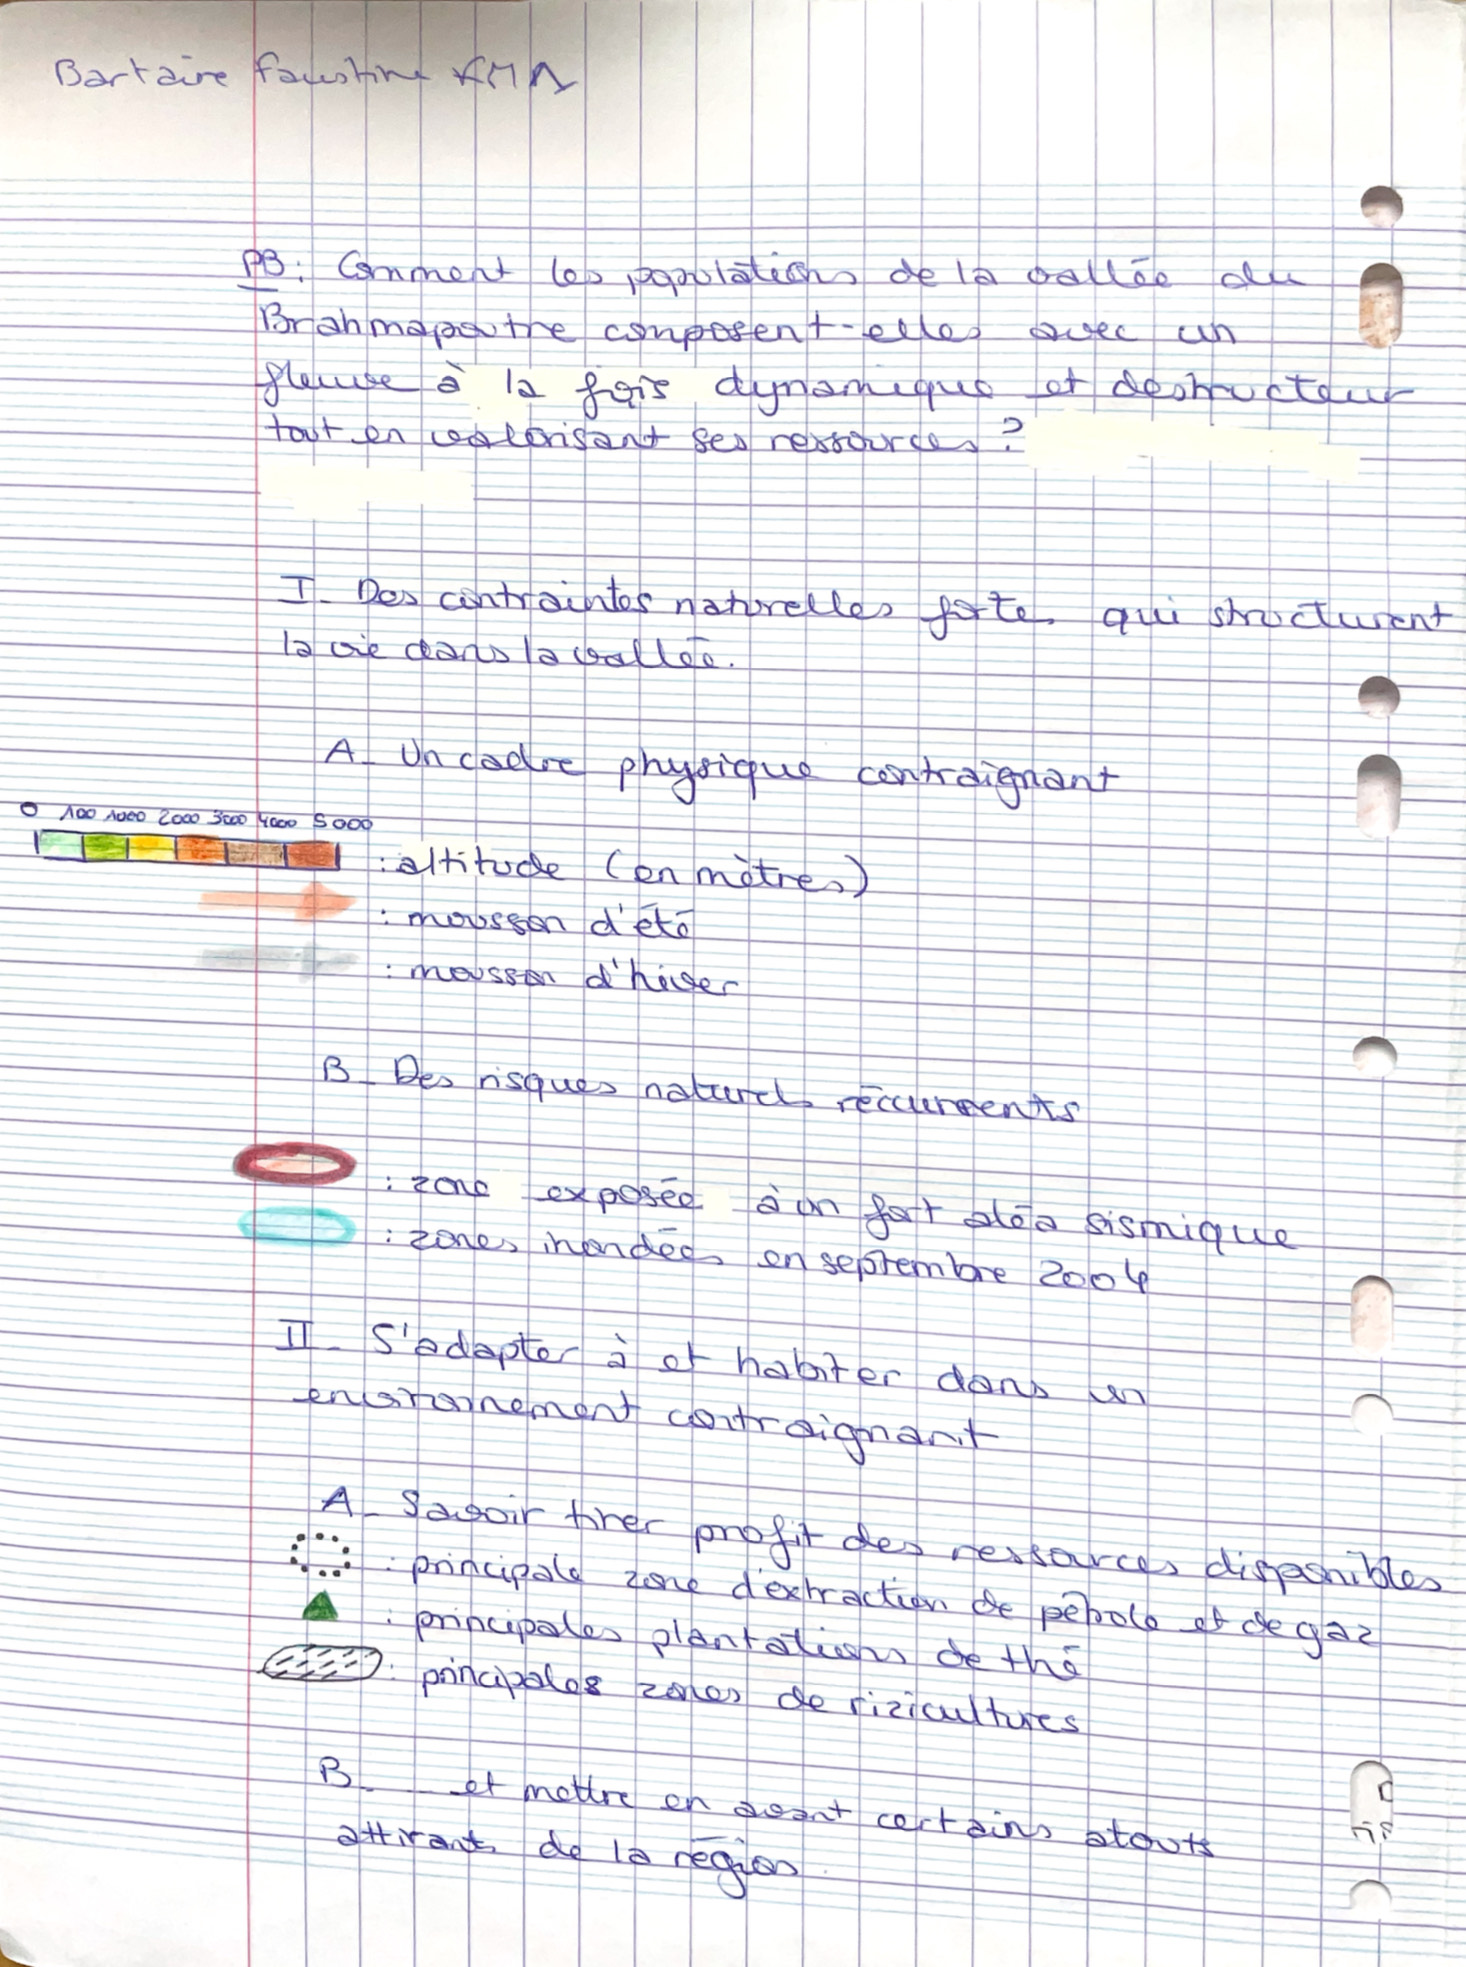 Bartaire Faustine KMA
PB: Comment les populations de la vallée du
Brahmapoutre composent-elles avec un
fleuve à la fois dynamique et destructeur
tout en valorisant ses ressources ?
I- Des contraintes naturelles forte qui structurent
la vie dans la vallée.
A- Un cadre physique contraignant
0 100 1000 2000 3000 4000 5000
: altitude (en mètres)
: mousson d'été
: mousson d'hiver
B- Des risques naturels récurrents
: zone exposée à un fort aléa sismique
: zones inondées en septembre 2004
II- S'adapter à et habiter dans un
environnement contraignant
A- Savoir tirer profit des ressources disponibles
: principale zone d'extraction de pétrole et de gaz
: principales plantations de thé
: principales zones de rizicultures
B- et mettre en avant certains atouts
attirants de la région